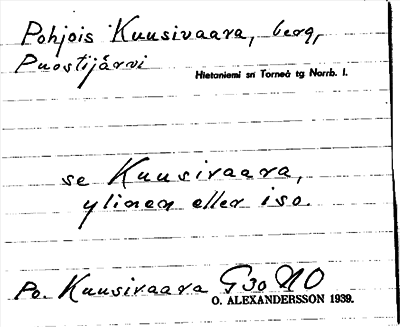 Pohjois Kuusivaara, berg,
Puostijärvi
Hietaniemi sn Torneå tg Norrb. l.
se Kuusivaara,
ylinen eller iso.
Po. Kuusivaara G30 NO
O. ALEXANDERSSON 1939.